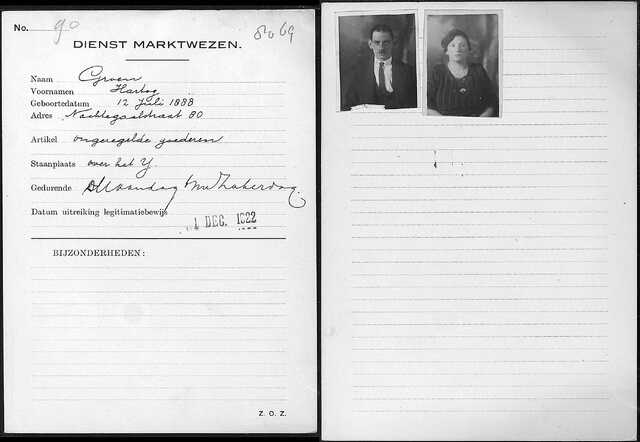 No. 90
8069
DIENST MARKTWEZEN.
Naam Groen
Voornamen Hartog
Geboortedatum 12 Juli 1888
Adres Nachtegaalstraat 80
Artikel ongeregelde goederen
Staanplaats over het Y
Gedurende Maandag t/m Zaterdag.
Datum uitreiking legitimatiebewijs 1 DEC. 1922
BIJZONDERHEDEN:
Z. O. Z.